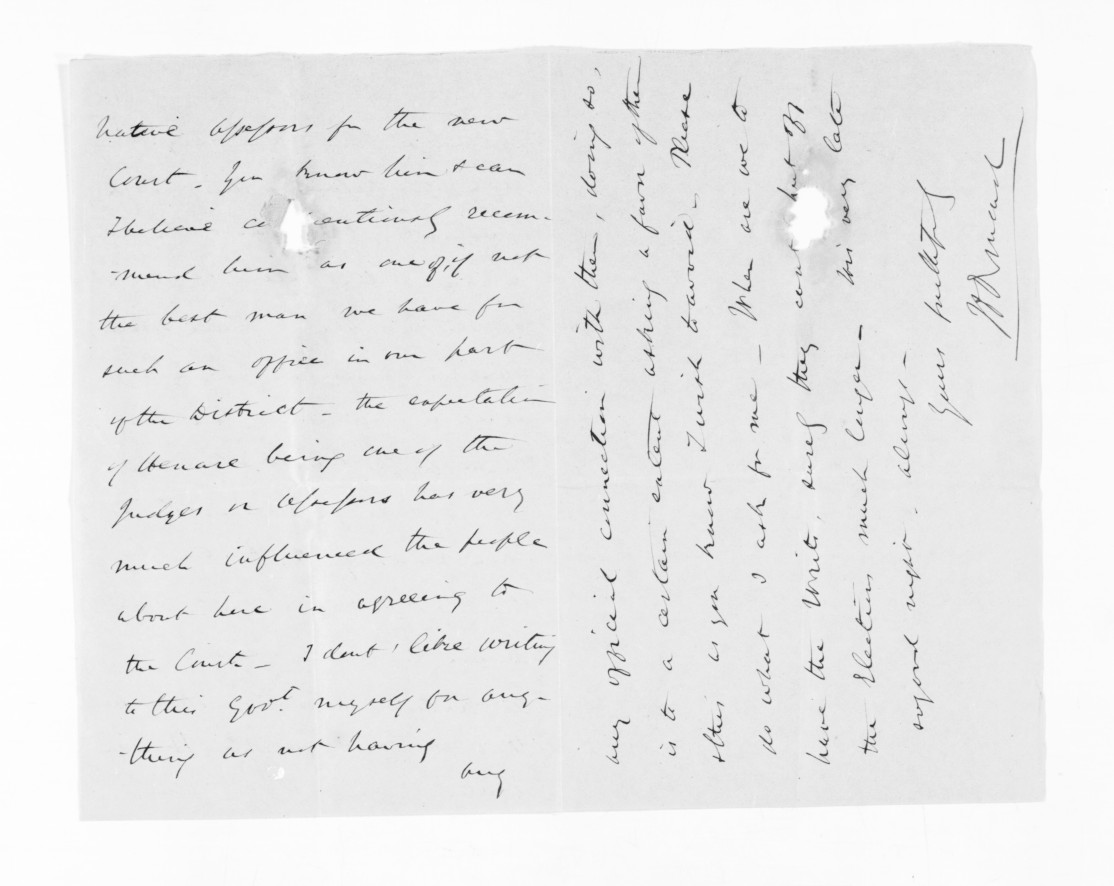 Native Assessors for the new
Court. You know him & can
I believe co entiously recom-
-mend him as one of, if not
the best man we have for
such an office in our part
of the District - the expectation
of Henare being one of the
Judges or Assessors has very
much influenced the people
about here in agreeing to
the Court - I dont like writing
to this Govt. myself for any-
-thing as not having
any
any official connection with them, doing so,
is to a certain extent asking a favor of them
& this as you know I wish to avoid - Please
do what I ask for me - When are we to
have the Writs, surely they cant put off
the Elections much longer - his very late
so good night. always -
Yours truly